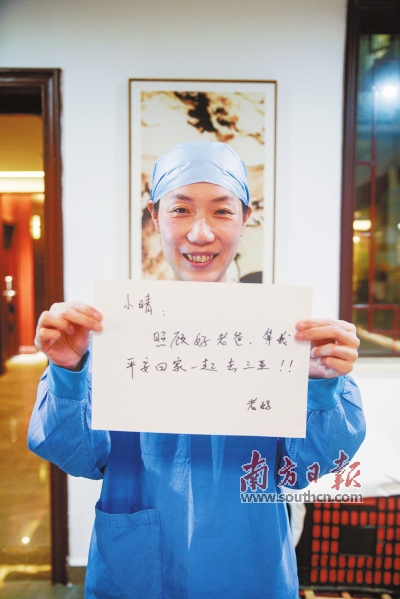 小晴：
照顾好老爸，等我
平安回家一起去三亚！！
老妈
南方日报
www.southcn.com